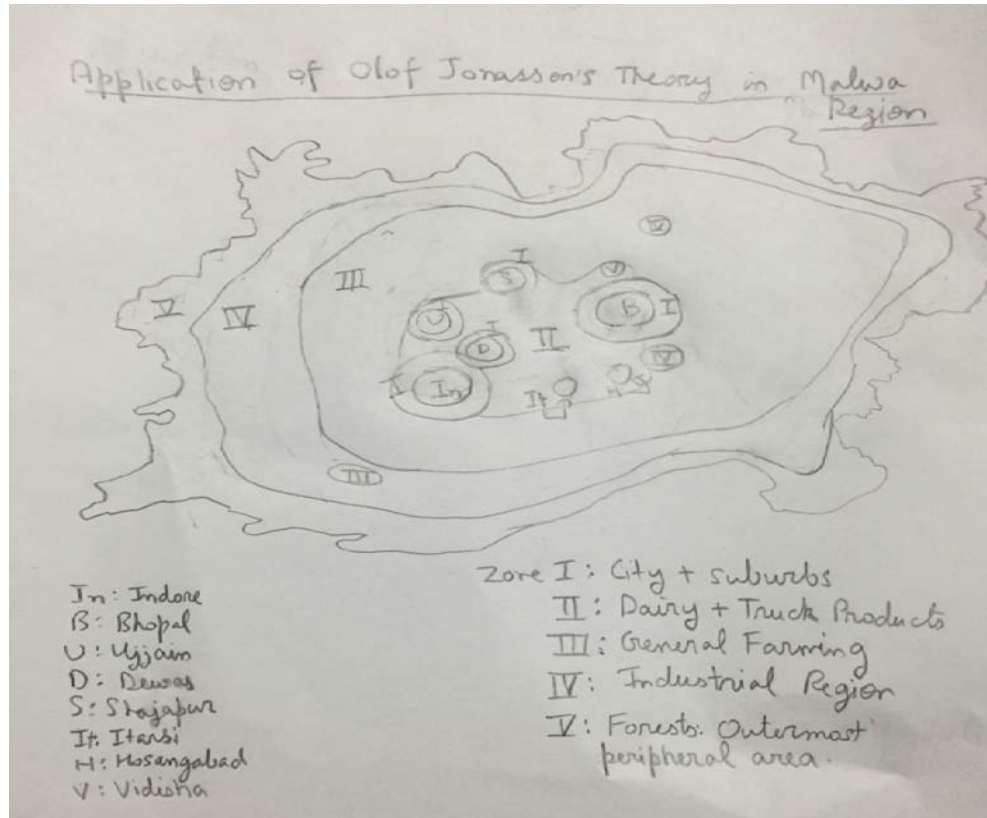 Application of Olof Jonasson's Theory in Malwa
Region
I
IV
V
S
III
I
B
I
V
IV
U
I
D
II
IV
I
In
It
H
III
In: Indore
B: Bhopal
U: Ujjain
D: Dewas
S: Shajapur
It: Itarsi
H: Hosangabad
V: Vidisha
Zone I: City + suburbs
II: Dairy + Truck Products
III: General Farming
IV: Industrial Region
V: Forests: Outermost
peripheral area.